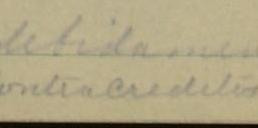 debidamen
ontracredito